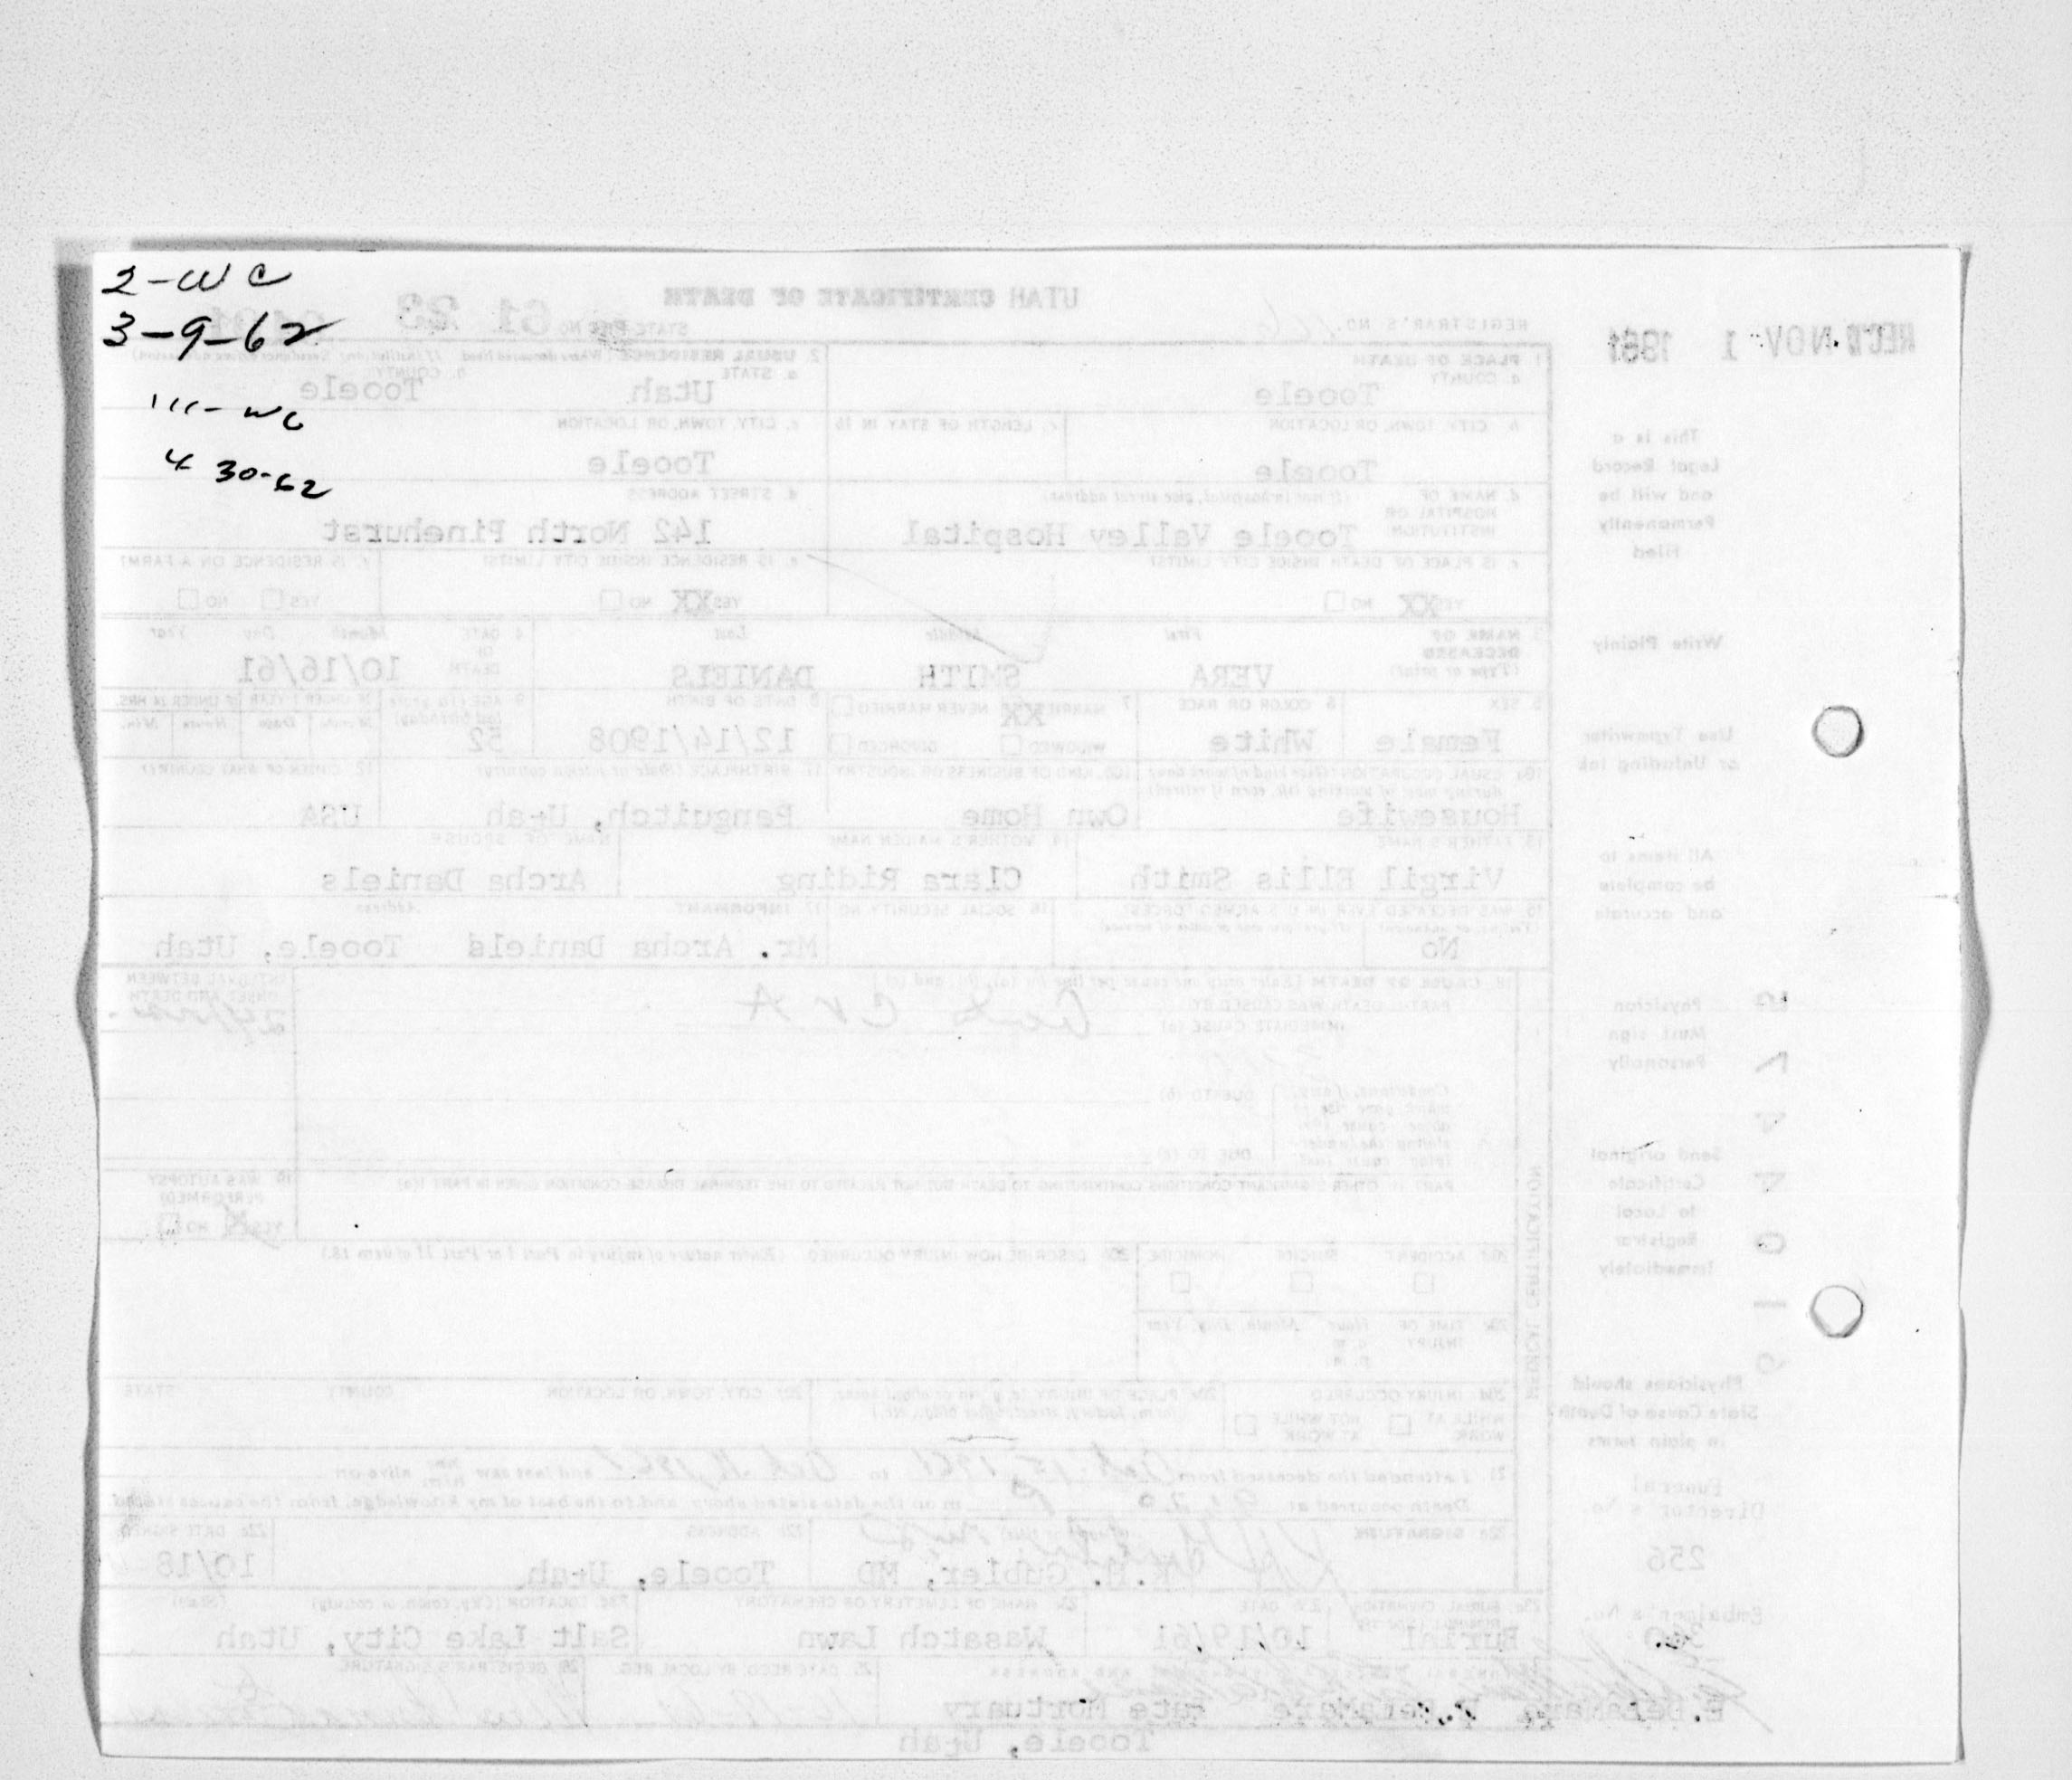 2-WC
3-9-62
111-WC
4 30-62
UTAH CERTIFICATE OF DEATH
REC'D NOV 1 1961
REGISTRAR'S NO.
STATE FILE NO. 61 23
1. PLACE OF DEATH
a. COUNTY
Tooele
2. USUAL RESIDENCE (Where deceased lived. If institution: Residence before admission)
a. STATE
Utah
b. COUNTY
Tooele
b. CITY, TOWN, OR LOCATION
Tooele
c. LENGTH OF STAY IN 1b
c. CITY, TOWN, OR LOCATION
Tooele
d. NAME OF HOSPITAL OR INSTITUTION (If not in hospital, give street address)
Tooele Valley Hospital
d. STREET ADDRESS
142 North Pinehurst
e. IS PLACE OF DEATH INSIDE CITY LIMITS?
YES XX NO
e. IS RESIDENCE INSIDE CITY LIMITS?
YES XX NO
f. IS RESIDENCE ON A FARM?
YES NO
3. NAME OF DECEASED (Type or print)
First Middle Last
VERA SMITH DANIELS
4. DATE OF DEATH
Month Day Year
10/16/61
5. SEX
Female
6. COLOR OR RACE
White
7. MARRIED XX NEVER MARRIED
WIDOWED DIVORCED
8. DATE OF BIRTH
12/14/1908
9. AGE (In years last birthday)
52
IF UNDER 1 YEAR
Months Days
IF UNDER 24 HRS.
Hours Min.
10a. USUAL OCCUPATION (Give kind of work done during most of working life, even if retired)
Housewife
10b. KIND OF BUSINESS OR INDUSTRY
Own Home
11. BIRTHPLACE (State or foreign country)
Panguitch, Utah
12. CITIZEN OF WHAT COUNTRY?
USA
13. FATHER'S NAME
Virgil Ellis Smith
14. MOTHER'S MAIDEN NAME
Clara Riding
NAME OF SPOUSE
Archa Daniels
15. WAS DECEASED EVER IN U.S. ARMED FORCES?
No
16. SOCIAL SECURITY NO.
17. INFORMANT Address
Mr. Archa Daniels Tooele, Utah
18. CAUSE OF DEATH (Enter only one cause per line for (a), (b), and (c))
PART I. DEATH WAS CAUSED BY:
IMMEDIATE CAUSE (a) Acute CVA
INTERVAL BETWEEN ONSET AND DEATH
Conditions, if any, which gave rise to above cause (a), stating the underlying cause last.
DUE TO (b)
DUE TO (c)
PART II. OTHER SIGNIFICANT CONDITIONS CONTRIBUTING TO DEATH BUT NOT RELATED TO THE TERMINAL DISEASE CONDITION GIVEN IN PART I(a)
19. WAS AUTOPSY PERFORMED?
YES X NO
MEDICAL CERTIFICATION
20a. ACCIDENT SUICIDE HOMICIDE
20b. DESCRIBE HOW INJURY OCCURRED. (Enter nature of injury in Part I or Part II of item 18.)
20c. TIME OF INJURY Hour Month, Day, Year
a.m.
p.m.
20d. INJURY OCCURRED
WHILE AT WORK NOT WHILE AT WORK
20e. PLACE OF INJURY (e.g., in or about home, farm, factory, street, office bldg., etc.)
20f. CITY, TOWN, OR LOCATION COUNTY STATE
21. I attended the deceased from Oct. 15 1961 to Oct 16, 1961 and last saw him alive on
Death occurred at 9:20 P m on the date stated above; and to the best of my knowledge, from the causes stated.
22a. SIGNATURE (Degree or title)
K.H. Gubler, MD
22b. ADDRESS
Tooele, Utah
22c. DATE SIGNED
10/18
23a. BURIAL, CREMATION, REMOVAL (Specify)
Burial
23b. DATE
10/19/61
23c. NAME OF CEMETERY OR CREMATORY
Wasatch Lawn
23d. LOCATION (City, town, or county) (State)
Salt Lake City, Utah
25. DATE RECD. BY LOCAL REG.
26. REGISTRAR'S SIGNATURE
Mortuary
Tooele, Utah
This is a
Legal Record
and will be
Permanently
Filed
Write Plainly
Use Typewriter
or Unfading Ink
All items to
be complete
and accurate
Physician
Must sign
Personally
Send original
Certificate
to Local
Registrar
Immediately
Physicians should
State Cause of Death
in plain terms
Funeral
Director's No.
256
Embalmer's No.
360